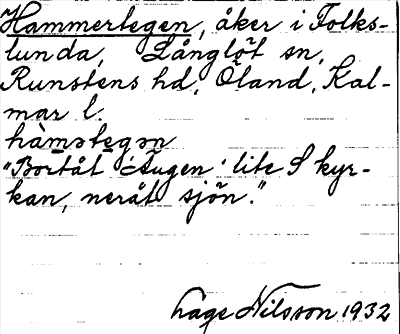 Hammertegen, åker i Folks-
lunda, Långlöt sn,
Runstens hd, Öland, Kal-
mar l.
hàmətegən
"Bortåt 'Augen' lite S kyr-
kan, neråt sjön."
Åge Nilsson 1932